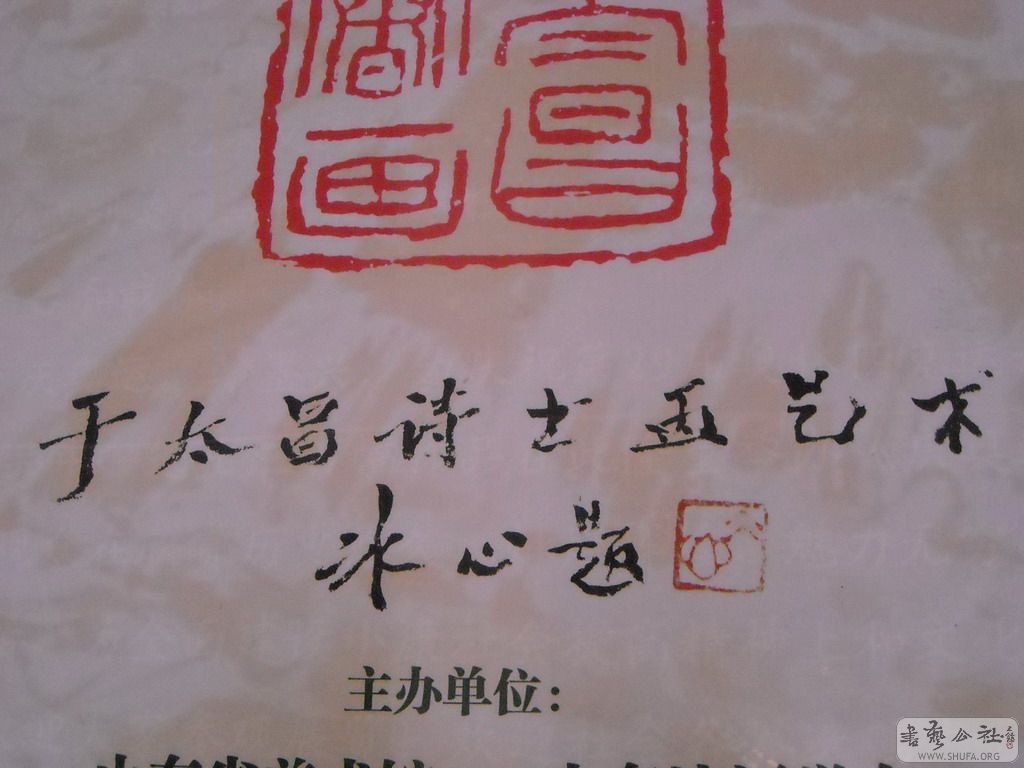 于太昌诗书画艺术
冰心题
主办单位：
書藝公社
WWW.SHUFA.ORG